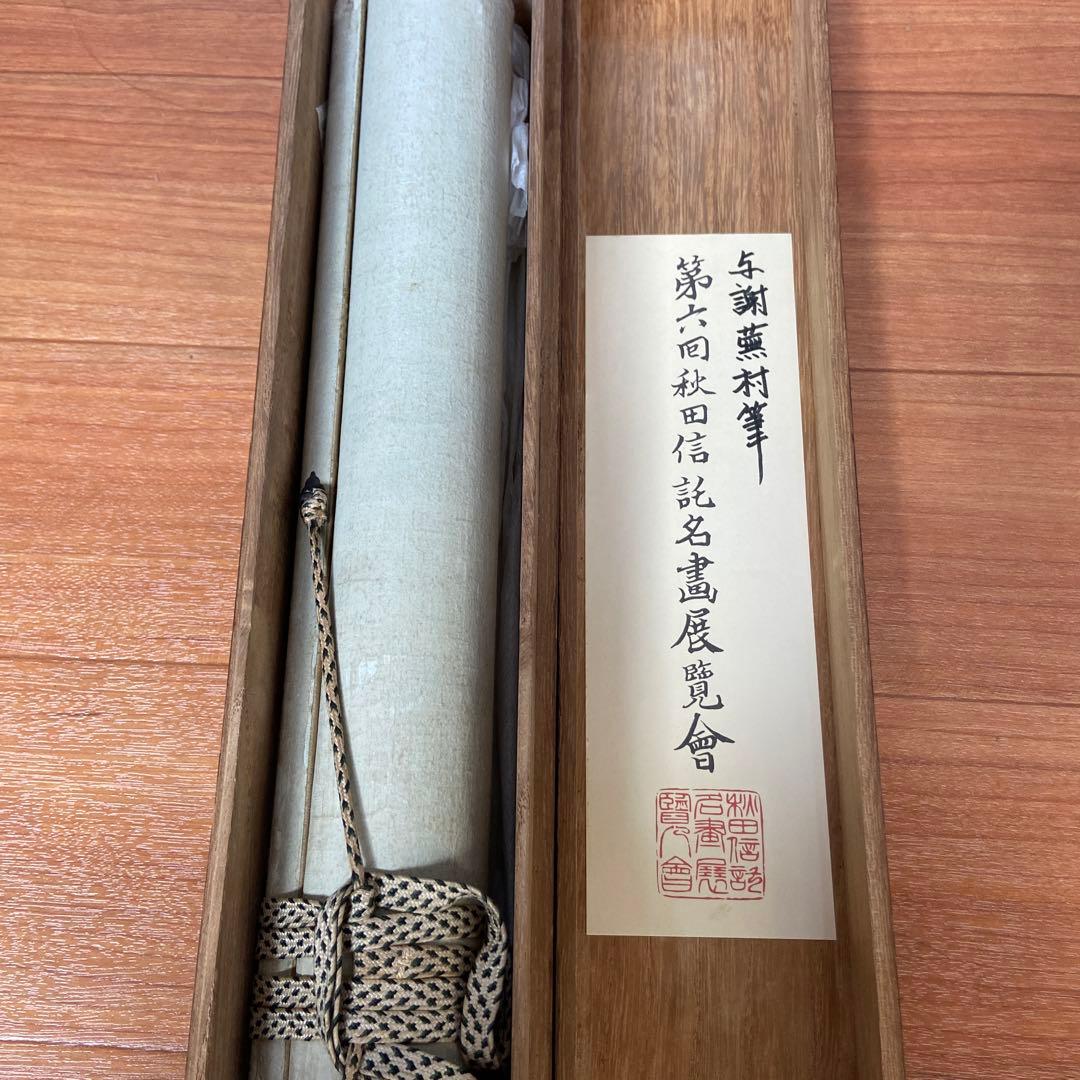 与謝蕪村筆
第六回秋田信託名畫展覽會
秋田信託
名畫展
覽會